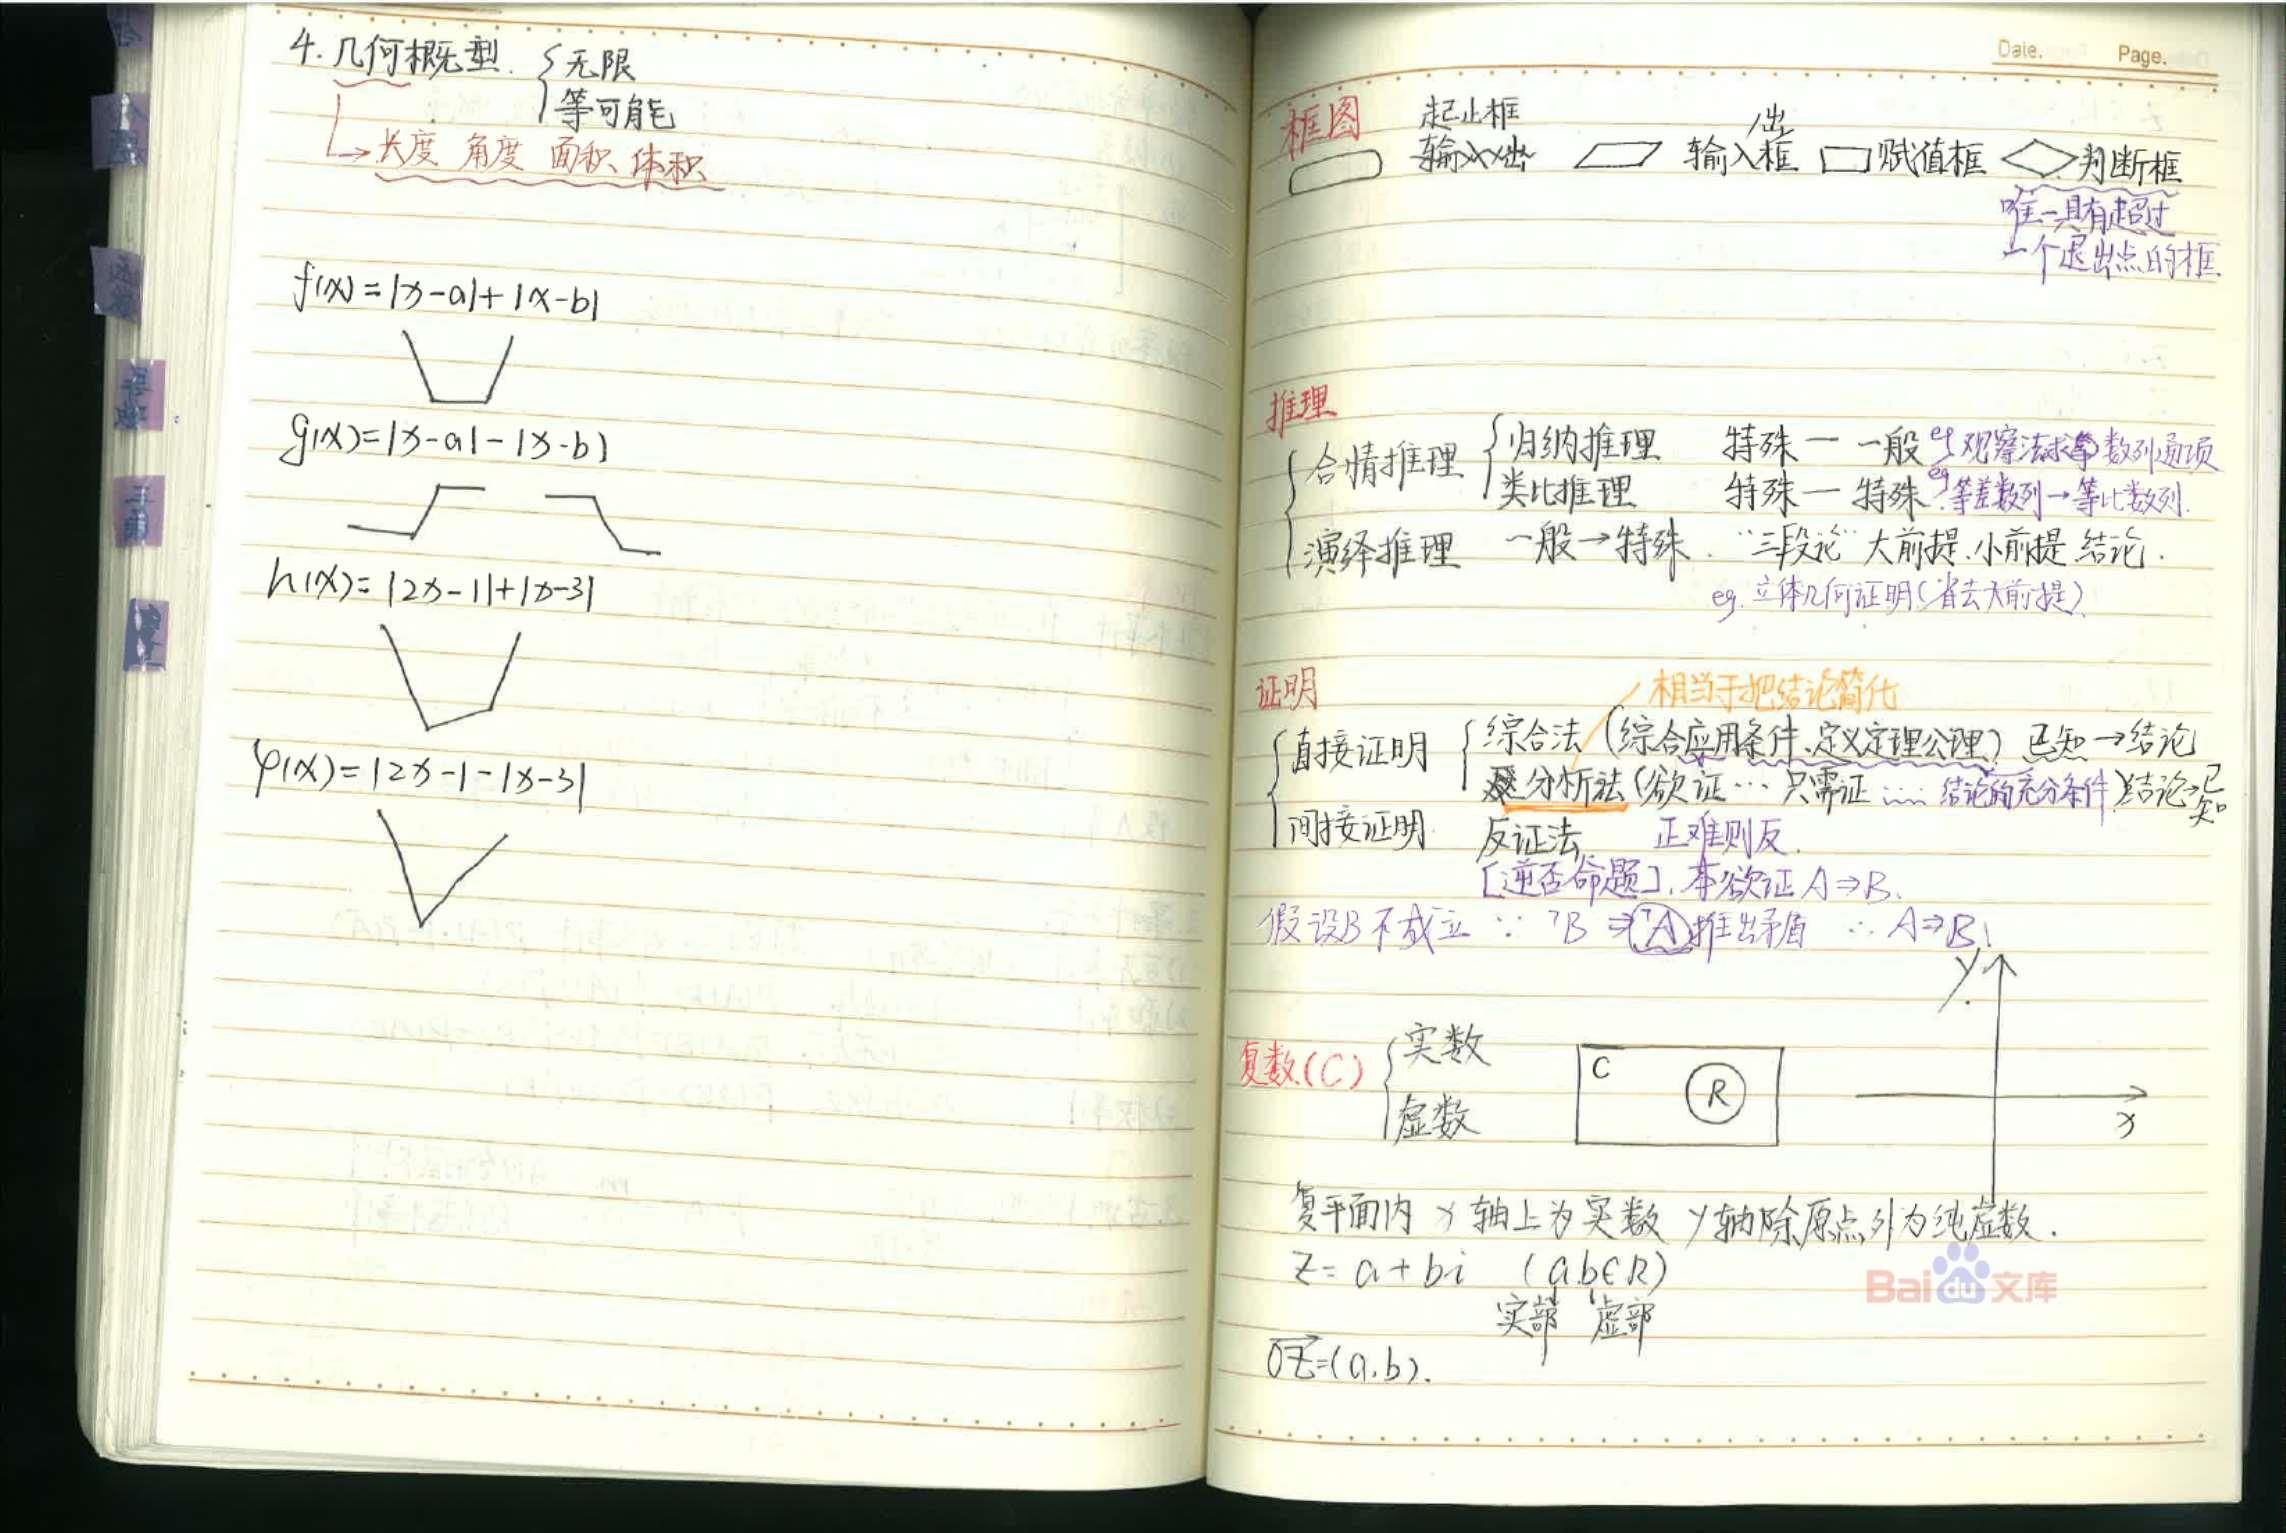 4. 几何概型. 无限
等可能
长度 角度 面积 体积
f(x)=|x-a|+|x-b|
g(x)=|x-a|-|x-b|
h(x)=|2x-1|+|x-3|
φ(x)=|2x-1-|x-3|
Date. Page.
框图 起止框 输入框 /出 赋值框 判断框
唯一具有超过
一个退出点的框
推理
合情推理 归纳推理 特殊—一般 eg 观察法求数列通项
类比推理 特殊—特殊 eg 等差数列→等比数列.
演绎推理 一般→特殊. “三段论” 大前提.小前提.结论.
eg. 立体几何证明(省去大前提)
证明 相当于把结论简化
直接证明 综合法 (综合应用条件、定义定理公理) 已知→结论
分析法 (欲证… 只需证…… 结论的充分条件) 结论→已知
间接证明 反证法 正难则反.
[逆否命题]. 本欲证 A⇒B.
假设B不成立 ∵ ¬B ⇒ ¬A 推出矛盾 ∴ A⇒B
y
复数(C) 实数
虚数
C R
x
复平面内 x轴上为实数 y轴除原点外为纯虚数.
z=a+bi (a.b∈R)
实部 虚部
OZ=(a,b).
Bai du 文库